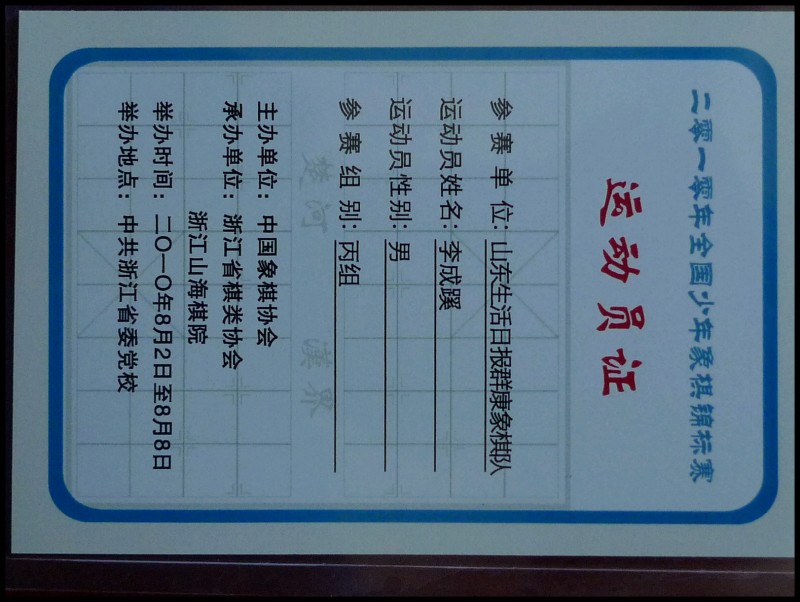 二零一零年全国少年象棋锦标赛
运动员证
参赛单位：山东生活日报群康象棋队
运动员姓名：李成蹊
运动员性别：男
参赛组别：丙组
楚河 漢界
主办单位：中国象棋协会
承办单位：浙江省棋类协会
浙江山海棋院
举办时间：二〇一〇年8月2日至8月8日
举办地点：中共浙江省委党校